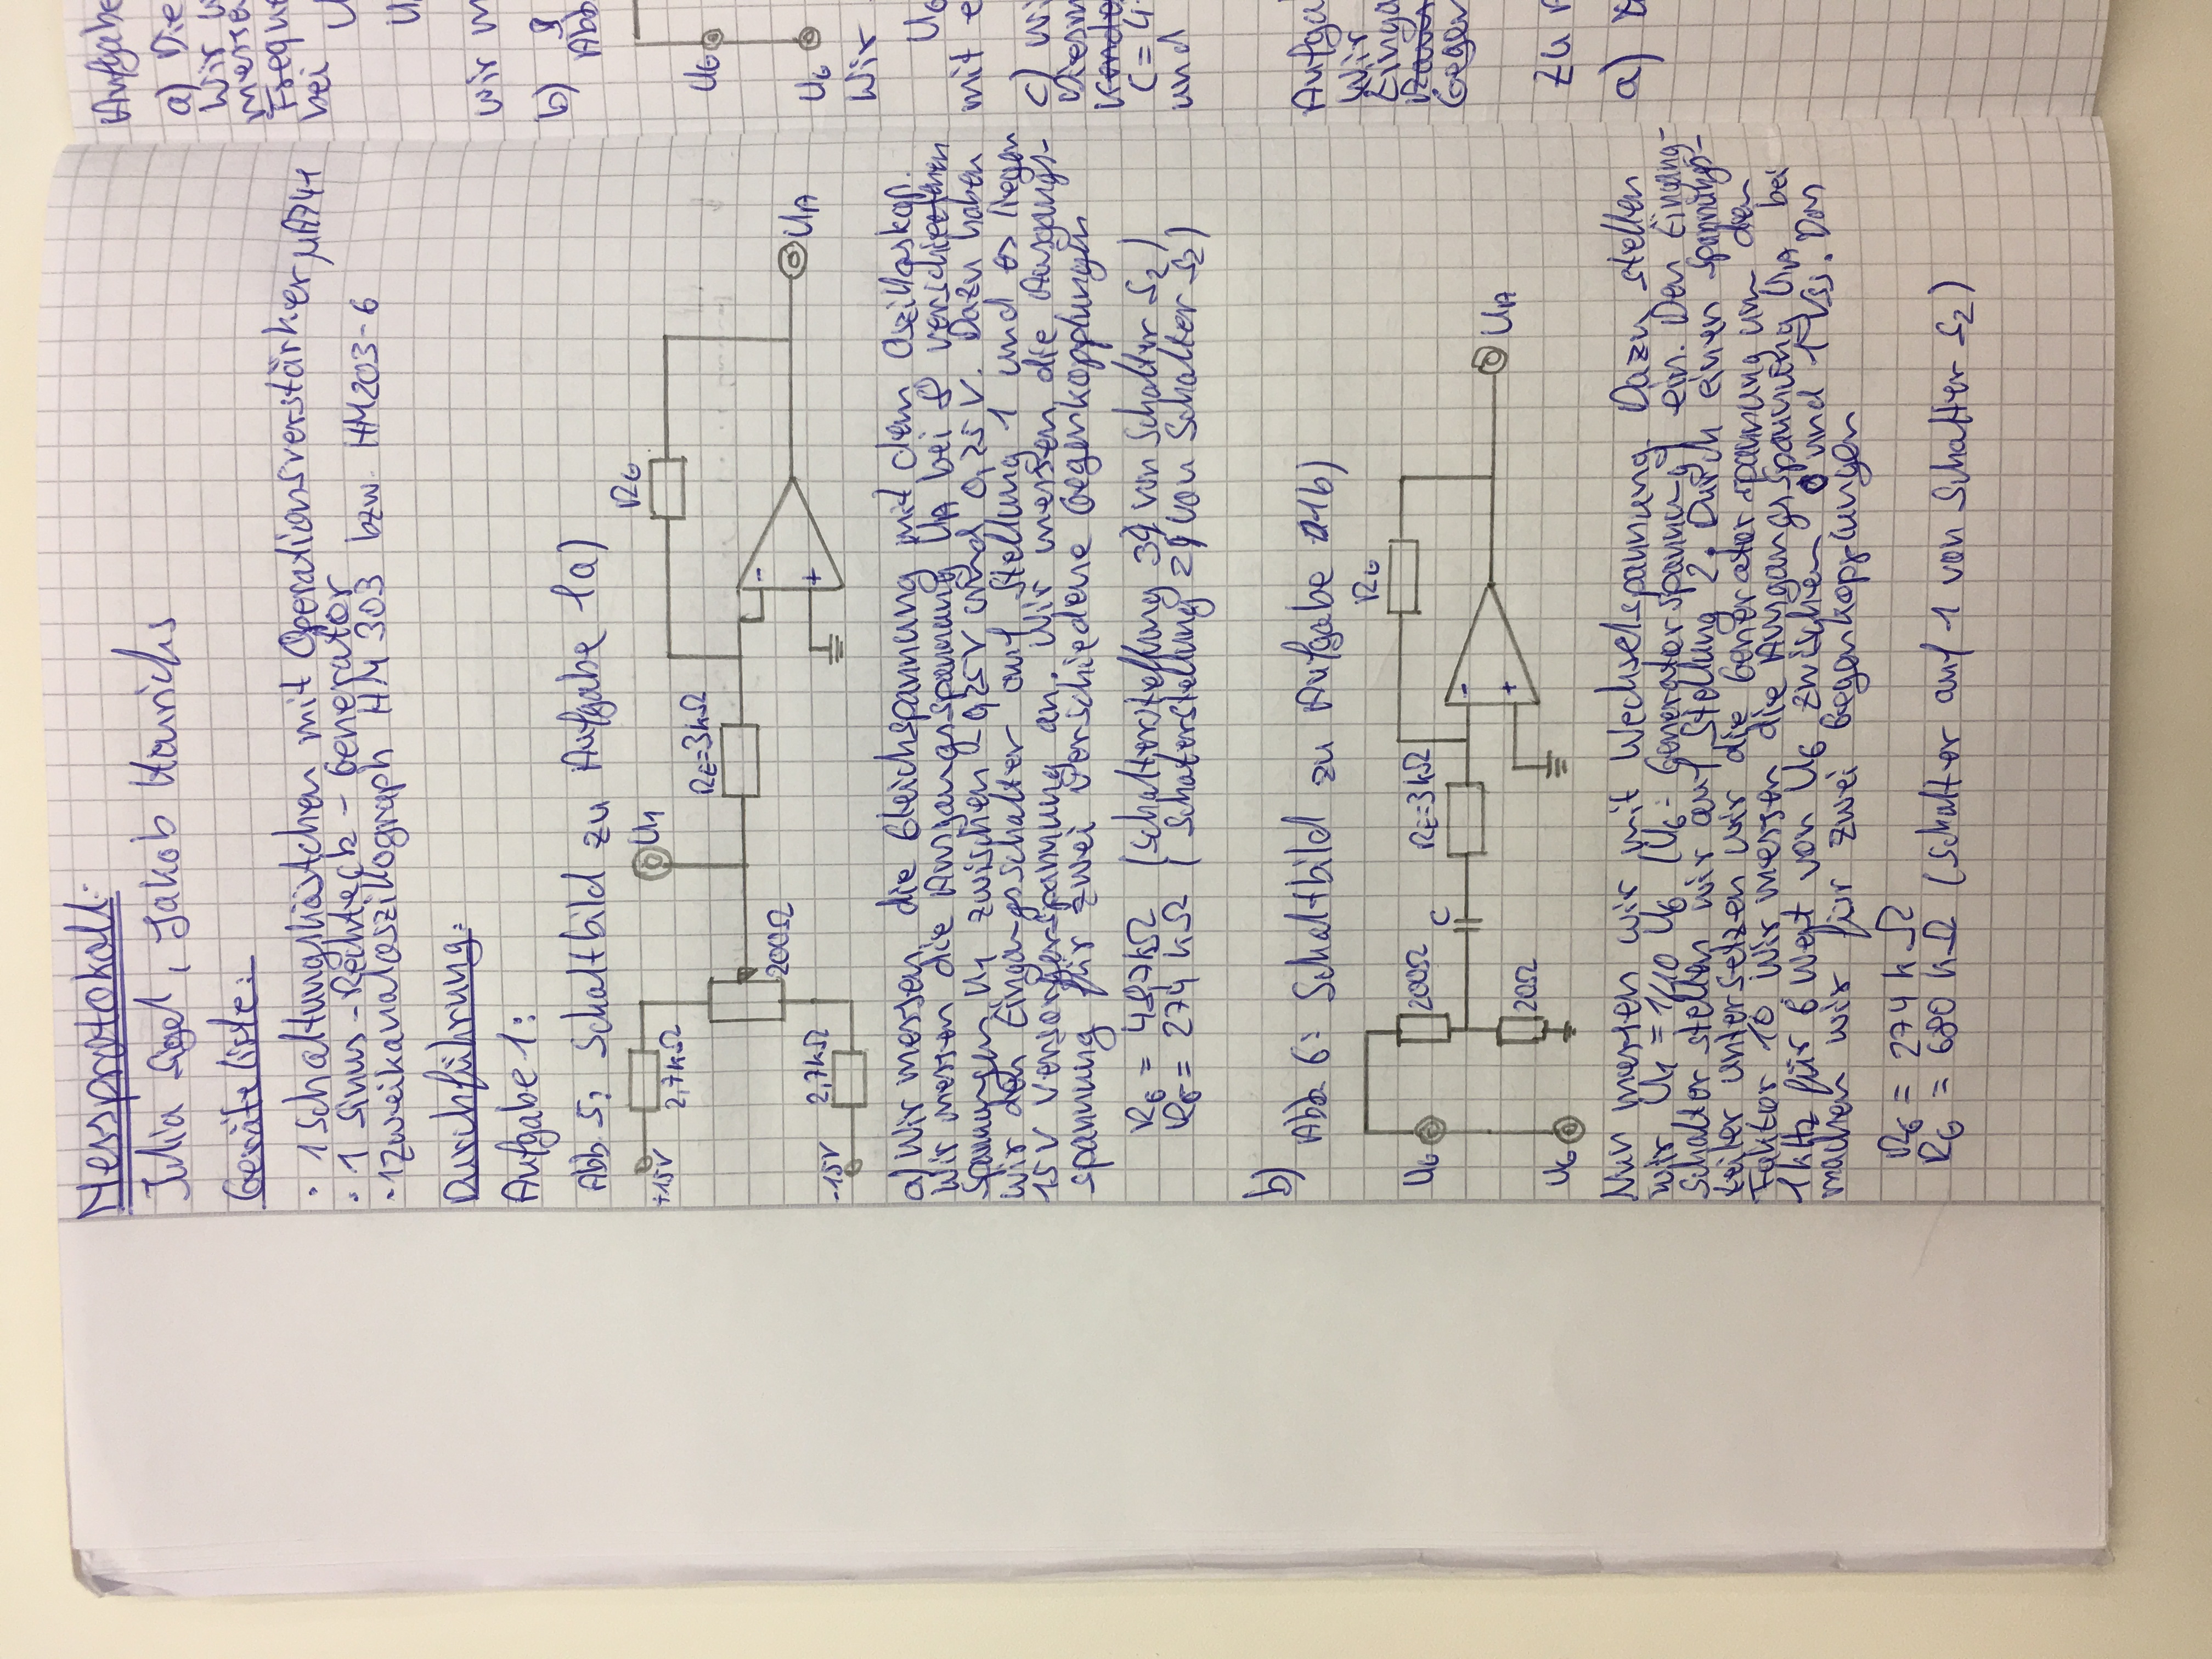 Messprotokoll:
Julia Sigel, Jakob Hinrichs
Geräteliste:
· 1 Schaltungskästchen mit Operationsverstärker µA741
· 1 Sinus-Rechteck-Generator
· 1 Zweikanaloszillograph HM 303 bzw. HM203-6
Durchführung:
Aufgabe 1:
Abb 5: Schaltbild zu Aufgabe 1a)
+15V
2,7kΩ
U1
RE=3kΩ
RG
200Ω
-15V
2,7kΩ
-
+
UA
a) Wir messen die Gleichspannung mit dem Oszilloskop.
Wir messen die Ausgangsspannung UA bei 8 verschiedenen
Spannungen U1 zwischen -0,25V und 0,25V. Dazu haben
wir den Eingangsschalter auf Stellung 1 und es liegen
15V Versorgerspannung an. Wir messen die Ausgangs-
spannung für zwei verschiedene Gegenkopplungen
RG = 48,7kΩ (Schalterstellung 3 von Schalter S2)
RG = 274 kΩ (Schaterstellung 2 von Schalter S2)
b)
Abb. 6: Schaltbild zu Aufgabe 1b)
UG
200Ω
C
RE=3kΩ
RG
-
+
UA
20Ω
UG
Nun messen wir mit Wechselspannung. Dazu stellen
wir U1 = 1/10 UG (UG: Generatorspannung) ein. Den Eingang-
schalter stellen wir auf Stellung 2. Durch einen Spannungs-
teiler untersetzen wir die Generatorspannung um den
Faktor 10. Wir messen die Ausgangsspannung UA bei
1kHz für 6 Wert von UG zwischen 0 und 1 Vss. Das
machen wir für zwei Gegenkopplungen
RG = 274 kΩ
RG = 680 kΩ (Schalter auf 1 von Schalter S2)
Aufgabe
a) Die
Wir
messe
Frequ
bei
U
U
wir m
b)
Abb
UG
UG
Wir
UG
mit e
c) Wi
Diesm
C = 4
und
Aufga
Wir
Einga
Gegen
zu
a)